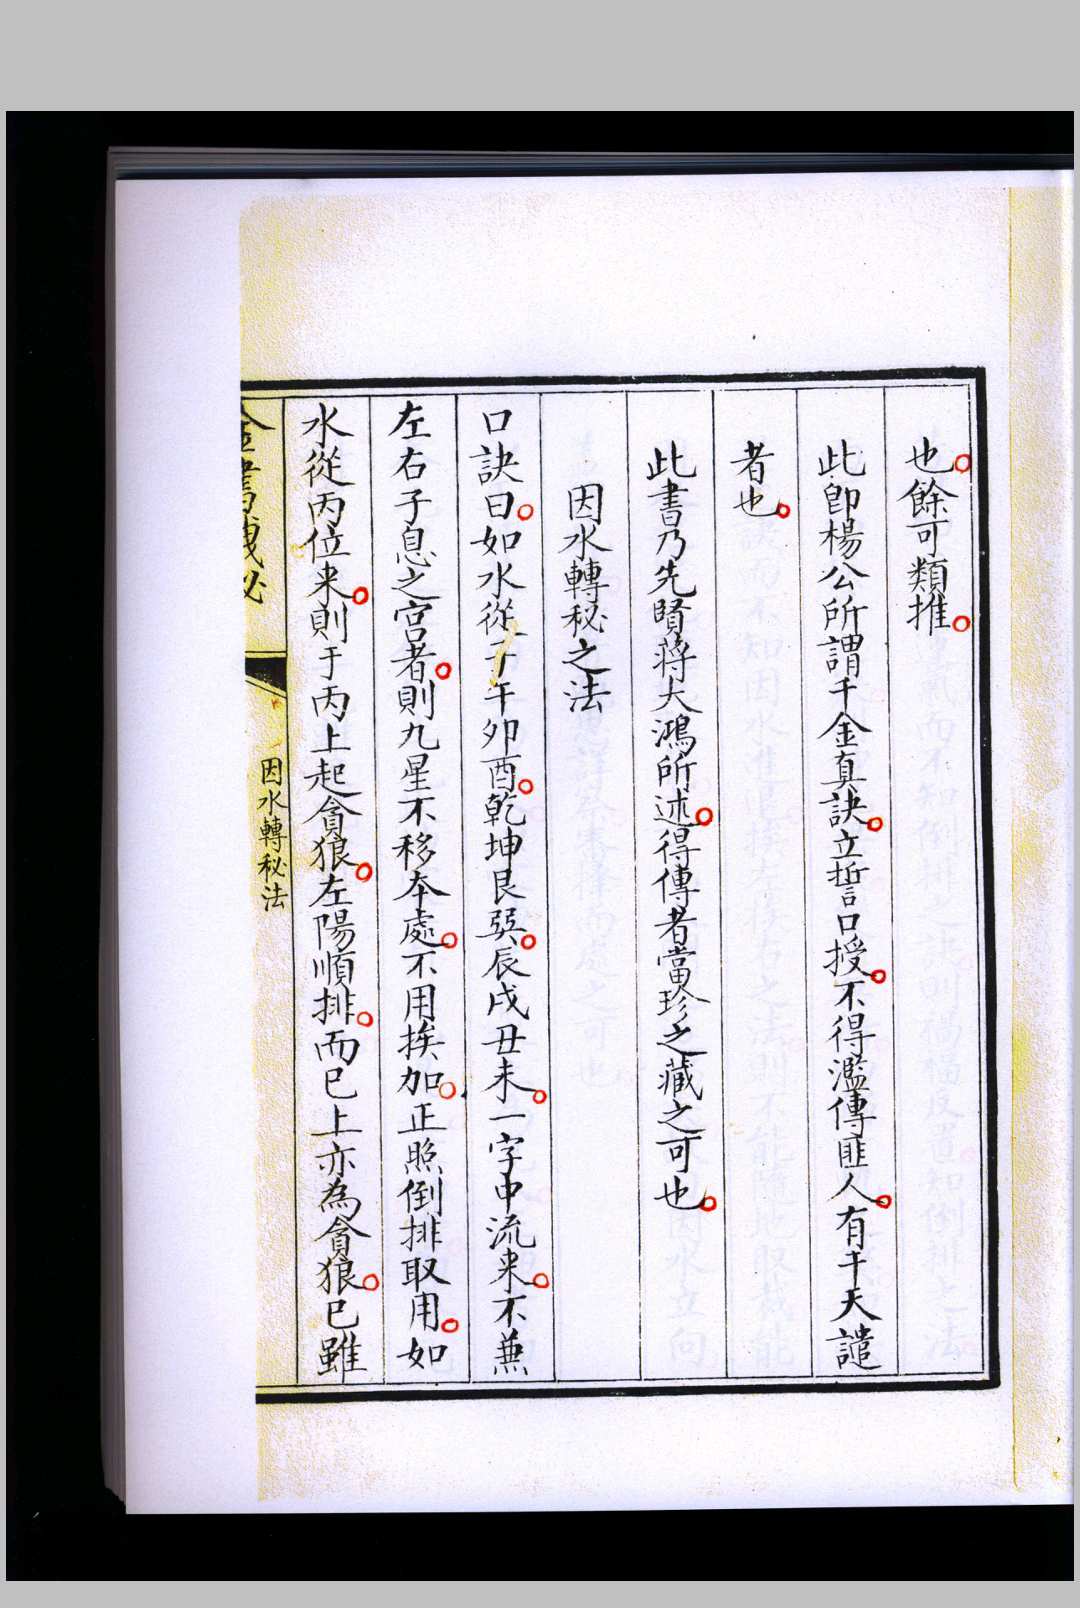 也。餘可類推。
此即楊公所謂千金真訣。立誓口授。不得濫傳匪人。有干天譴
者也。
此書乃先賢蔣大鴻所述。得傳者當珍之藏之可也。
因水轉秘之法
口訣曰。如水從子午卯酉。乾坤艮巽。辰戌丑未。一字中流来。不兼
左右子息之宮者。則九星不移本處。不用挨加。正照倒排取用。如
水從丙位来。則于丙上起貪狼。左陽順排。而巳上亦為貪狼。巳雖
金書秘
因水轉秘法